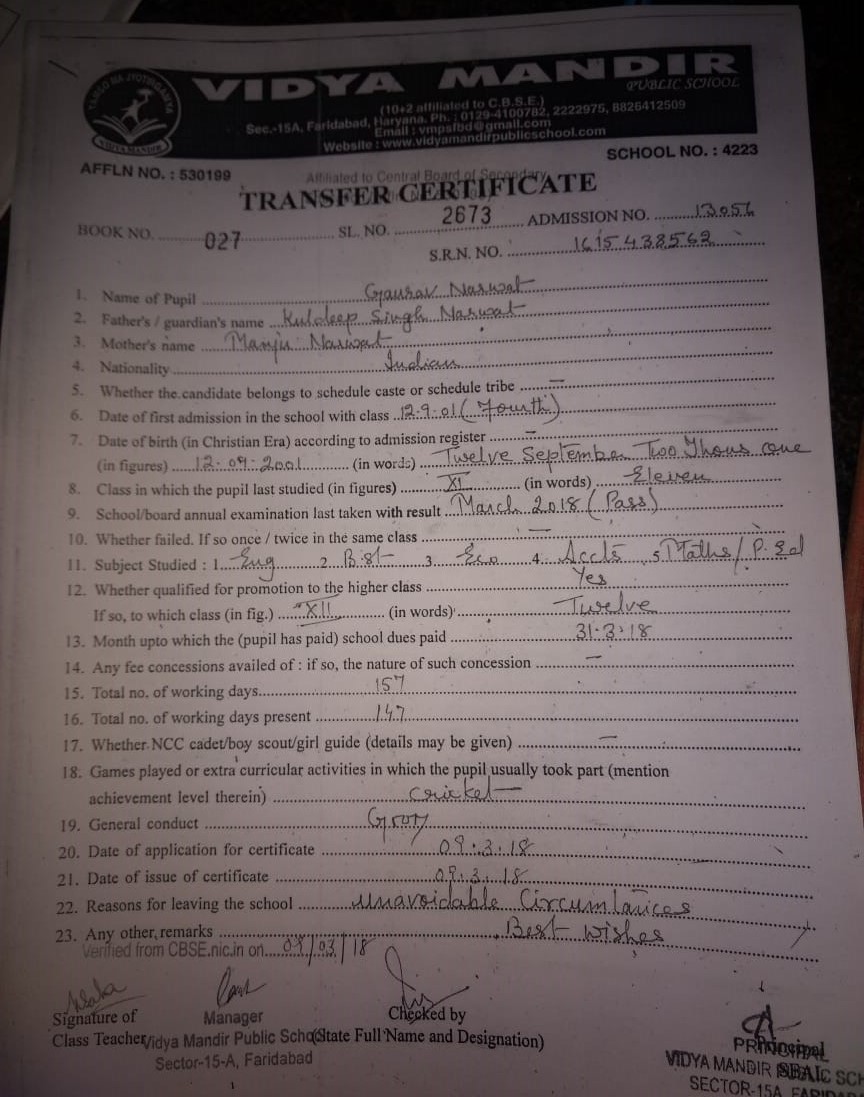 VIDYA MANDIR
PUBLIC SCHOOL
(10+2 affiliated to C.B.S.E.)
Sec.-15A, Faridabad, Haryana. Ph. : 0129-4100782, 2222975, 8826412509
Email : vmpsfbd@gmail.com
Website : www.vidyamandirpublicschool.com
VIDYA MANDIR
AFFLN NO. : 530199 SCHOOL NO. : 4223
Affiliated to Central Board of Secondary
TRANSFER CERTIFICATE
BOOK NO. 027 SL. NO. 2673 ADMISSION NO. 13056
S.R.N. NO. 1615438562
1. Name of Pupil Gaurav Narwat
2. Father's / guardian's name Kuldeep Singh Narwat
3. Mother's name Manju Narwat
4. Nationality Indian
5. Whether the candidate belongs to schedule caste or schedule tribe —
6. Date of first admission in the school with class 12-9-01 (Fourth)
7. Date of birth (in Christian Era) according to admission register —
(in figures) 12.09.2001 (in words) Twelve September Two Thous one
8. Class in which the pupil last studied (in figures) XI (in words) Eleven
9. School/board annual examination last taken with result March 2018 (Pass)
10. Whether failed. If so once / twice in the same class —
11. Subject Studied : 1. Eng 2. B.st 3. Eco 4. Accts 5. Maths / P. Ed
12. Whether qualified for promotion to the higher class Yes
If so, to which class (in fig.) XII (in words) Twelve
13. Month upto which the (pupil has paid) school dues paid 31.3.18
14. Any fee concessions availed of : if so, the nature of such concession —
15. Total no. of working days 157
16. Total no. of working days present 147
17. Whether NCC cadet/boy scout/girl guide (details may be given) —
18. Games played or extra curricular activities in which the pupil usually took part (mention
achievement level therein) Cricket
19. General conduct Good
20. Date of application for certificate 09.3.18
21. Date of issue of certificate 09.3.18
22. Reasons for leaving the school unavoidable Circumtances
23. Any other, remarks Best wishes
Verified from CBSE.nic.in on 09/03/18
Signature of Manager Checked by
Class Teacher Vidya Mandir Public School (State Full Name and Designation)
Sector-15-A, Faridabad
Principal
PRINCIPAL
VIDYA MANDIR SCH
SEAL
SECTOR-15A, FARIDA